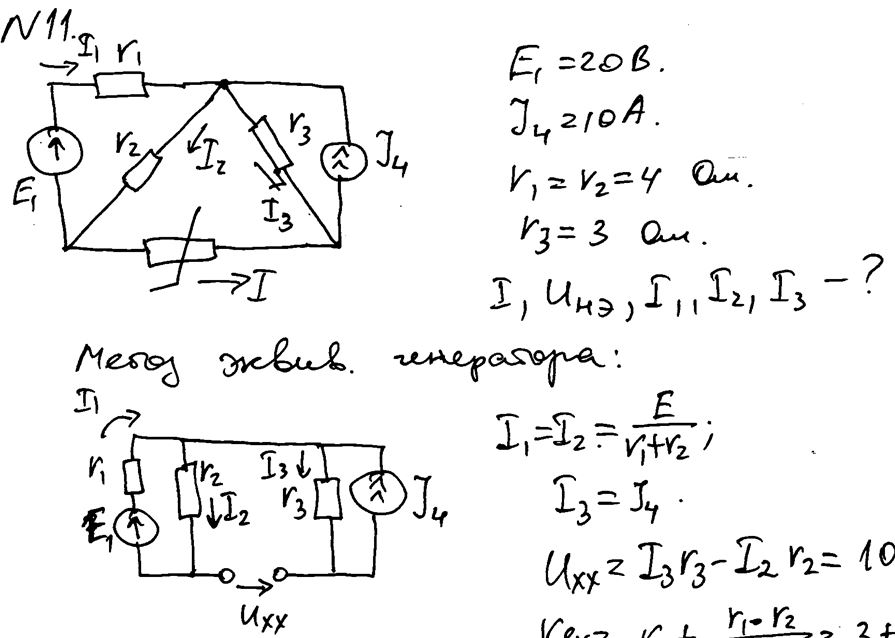 N11.
I₁ r₁
r₂
I₂
r₃
I₃
J₄
E₁
I
E₁ = 20 В.
J₄ = 10 А.
r₁ = r₂ = 4 Ом.
r₃ = 3 Ом.
I, Uнэ, I₁, I₂, I₃ – ?
Метод эквив. генератора:
I₁
r₁
E₁
r₂
I₂
I₃
r₃
J₄
Uxx
I₁ = I₂ = E / (r₁ + r₂);
I₃ = J₄.
Uxx = I₃r₃ – I₂r₂ = 10
r₁·r₂